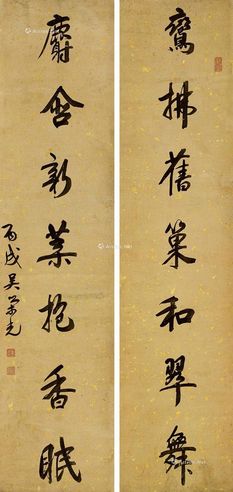 鸞拂舊巢和翠舞
麝含新葉抱香眠
丙戌吴榮光